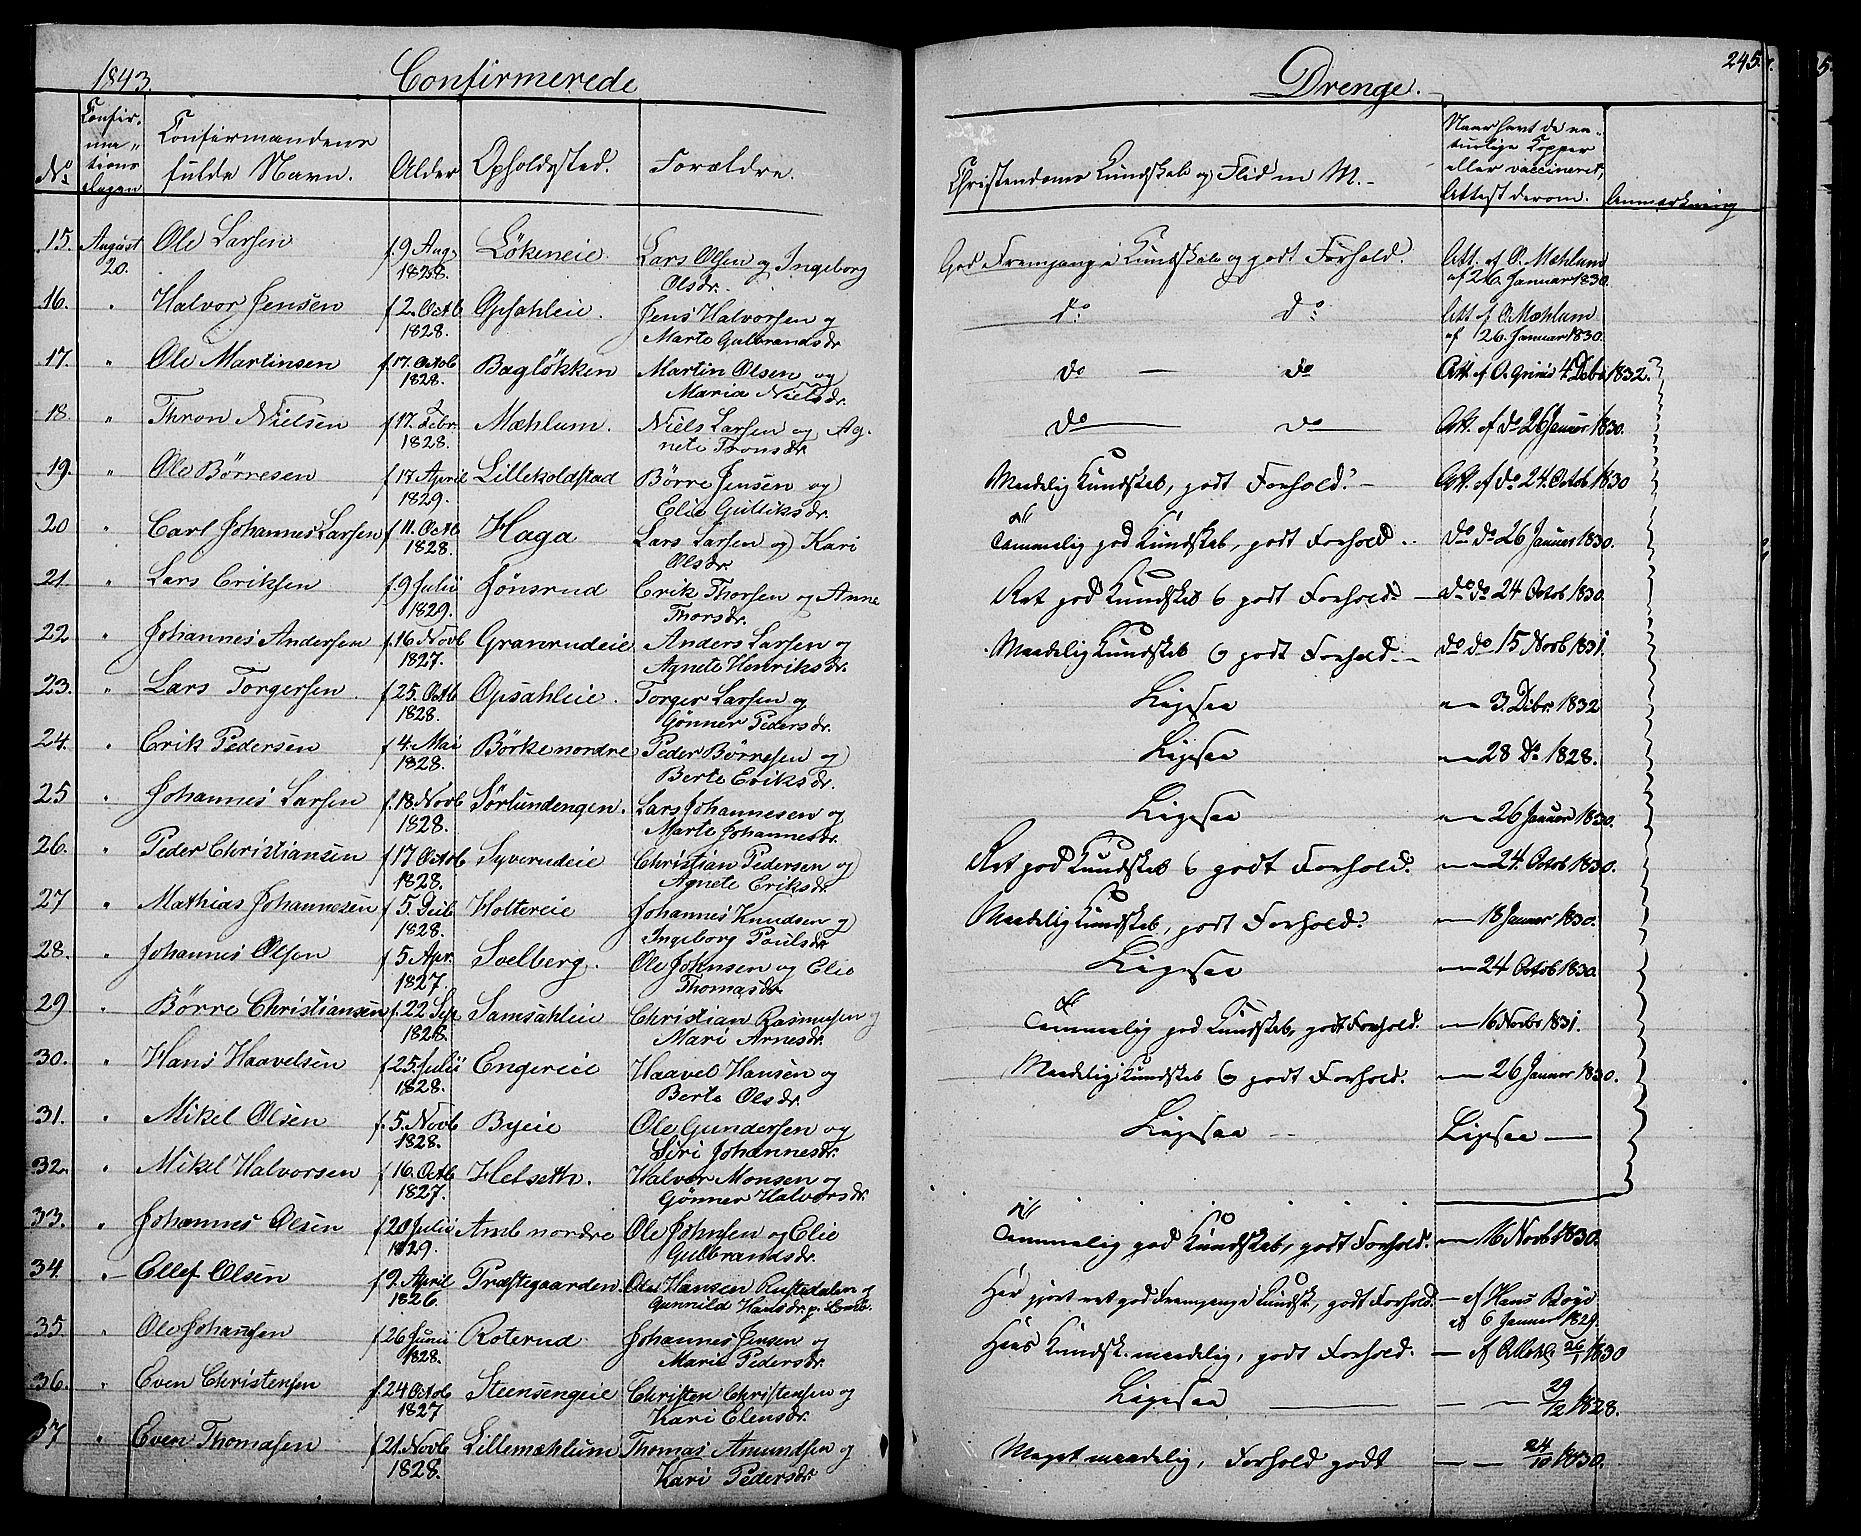 1843.
Confirmerede
Drenge.
245.
No
Confir-
ma-
tions
dagen
Confirmandens
fulde Navn.
Alder
Opholdssted.
Forældre.
Christendoms Kundskab og Flid m M.
Naar havt de na-
turlige Kopper
eller vaccineret,
Attest derom.
Anmærkning
15. August 20. Ole Larsen f. 9 Aug. 1828. Lökeneie. Lars Olsen og Ingeborg Olsdr. God Fremgang i Kundskab og godt Forhold. Att. af O. Mæhlum af 26. Januar 1830.
16. " Halvor Jensen f 2. Octb 1828. Opsahleie. Jens Halvorsen og Marte Gulbrandsdr do do Att af O. Mæhlum af 26. Januar 1830.
17. " Ole Martinsen f. 17. Octob 1828. Baglökken Martin Olsen og Maria Nielsdr. do — do Att. af A. Grini 4 Debr 1832.
18. " Thron Nielsen f 17. Febr 1828. Mæhlum. Niels Larsen og Agnete Tronsdr. do do Att. af do 26 Januar 1830.
19. " Ole Börresen f 17 April 1829. Lillekoldstad Börre Jensen og Elie Gulliksdr. Maadelig Kundskab, godt Forhold. Att. af do 24. Octob 1830
20 " Carl Johannes Larsen f 11. Octb 1828. Haga Lars Larsen og Kari Olsdr Temmelig god Kundskab, godt Forhold. do do 26 Januar 1830.
21 " Lars Eriksen f. 9 Julii 1829. Jönsrud Erik Thorsen og Anne Thorsdr. Ret god Kundskab & godt Forhold — do do 24 Octob 1830.
22 " Johannes Andersen f. 16 Novb 1827. Gravrudeie Anders Larsen og Agnete Henriksdr. Maadelig Kundskab & godt Forhold. do do 15 Novb 1831.
23. " Lars Torgersen f 25. Octb 1828. Opsahleie. Torger Larsen og Gönner Pedersdr. Ligesaa — 3. Debr. 1832
24. " Erik Pedersen f 4. Mai 1828. Börke nordre Peder Börresen og Berte Eriksdr. Ligesaa — 28 do 1828.
25 " Johannes Larsen f. 18. Novb 1828. Sörlundengen. Lars Johannesen og Marte Johannesdr. Ligesaa — 26 Januar 1830.
26. " Peder Christiansen f 17 Octob 1828. Syverudeie Christian Pedersen og Agnete Eriksdr Ret god Kundskab & godt Forhold. — 24. Octob 1830.
27 " Mathias Johannesen f 5. Deib 1828. Holtereie Johannes Knudsen og Ingeborg Poulsdr Maadelig Kundskab, godt Forhold. — 18 Januar 1830.
28. " Johannes Olsen f 5 Apr. 1827. Solberg. Ole Johnsen og Elie Thomasdr. Ligesaa — 24 Octob 1830.
29 " Börre Christiansen f. 22 Sep. 1828. Samsahleie Christian Rasmussen og Mari Arnesdr. Temmelig god Kundskab, godt Forhold. — 16 Novbr 1831.
30. " Hans Haavelsen f 25. Julii 1828. Engereie Haavel Hansen og Berte Olsdr. Maadelig Kundskab & godt Forhold. — 26 Januar 1830.
31. " Mikel Olsen f. 5. Novb 1828. Byeie Ole Gundersen og Siri Johannesdr. Ligesaa — Ligesaa —
32. " Mikel Halvorsen f 16. Octb 1827. Helseth. Halvor Monsen og Gönner Halvorsdr.
33. " Johannes Olsen f 20 Julii 1829. Amb nordre Ole Johnsen og Elie Gulbrandsdr. Temmelig god Kundskab, godt Forhold. — 16 Novb 1830.
34. " Ellef Olsen f 2. April 1826. Præstegaarden. Ole Hansen Rustadalen og Gunnild Hansdr. Har gjort ret god Fremgang i Kundsk., godt Forhold. — af Hans Boye af 6 Januar 1829.
35. " Ole Johansen f 26 Junii 1828. Roterud Johannes Jensen og Marie Pedersdr. Hans Kundsk. maadelig, godt Forhold. — af 26/1 1830
36. " Even Christensen f. 24 Octob 1827 Steensengeie Christen Christensen og Kari Elensdr. Ligesaa — — — 29/12 1828.
37 " Even Thomasen f 21. Novb 1828. Lillemæhlum Thomas Amundsen og Kari Pedersdr Meget maadelig, Forhold godt — — 24/10 1830.